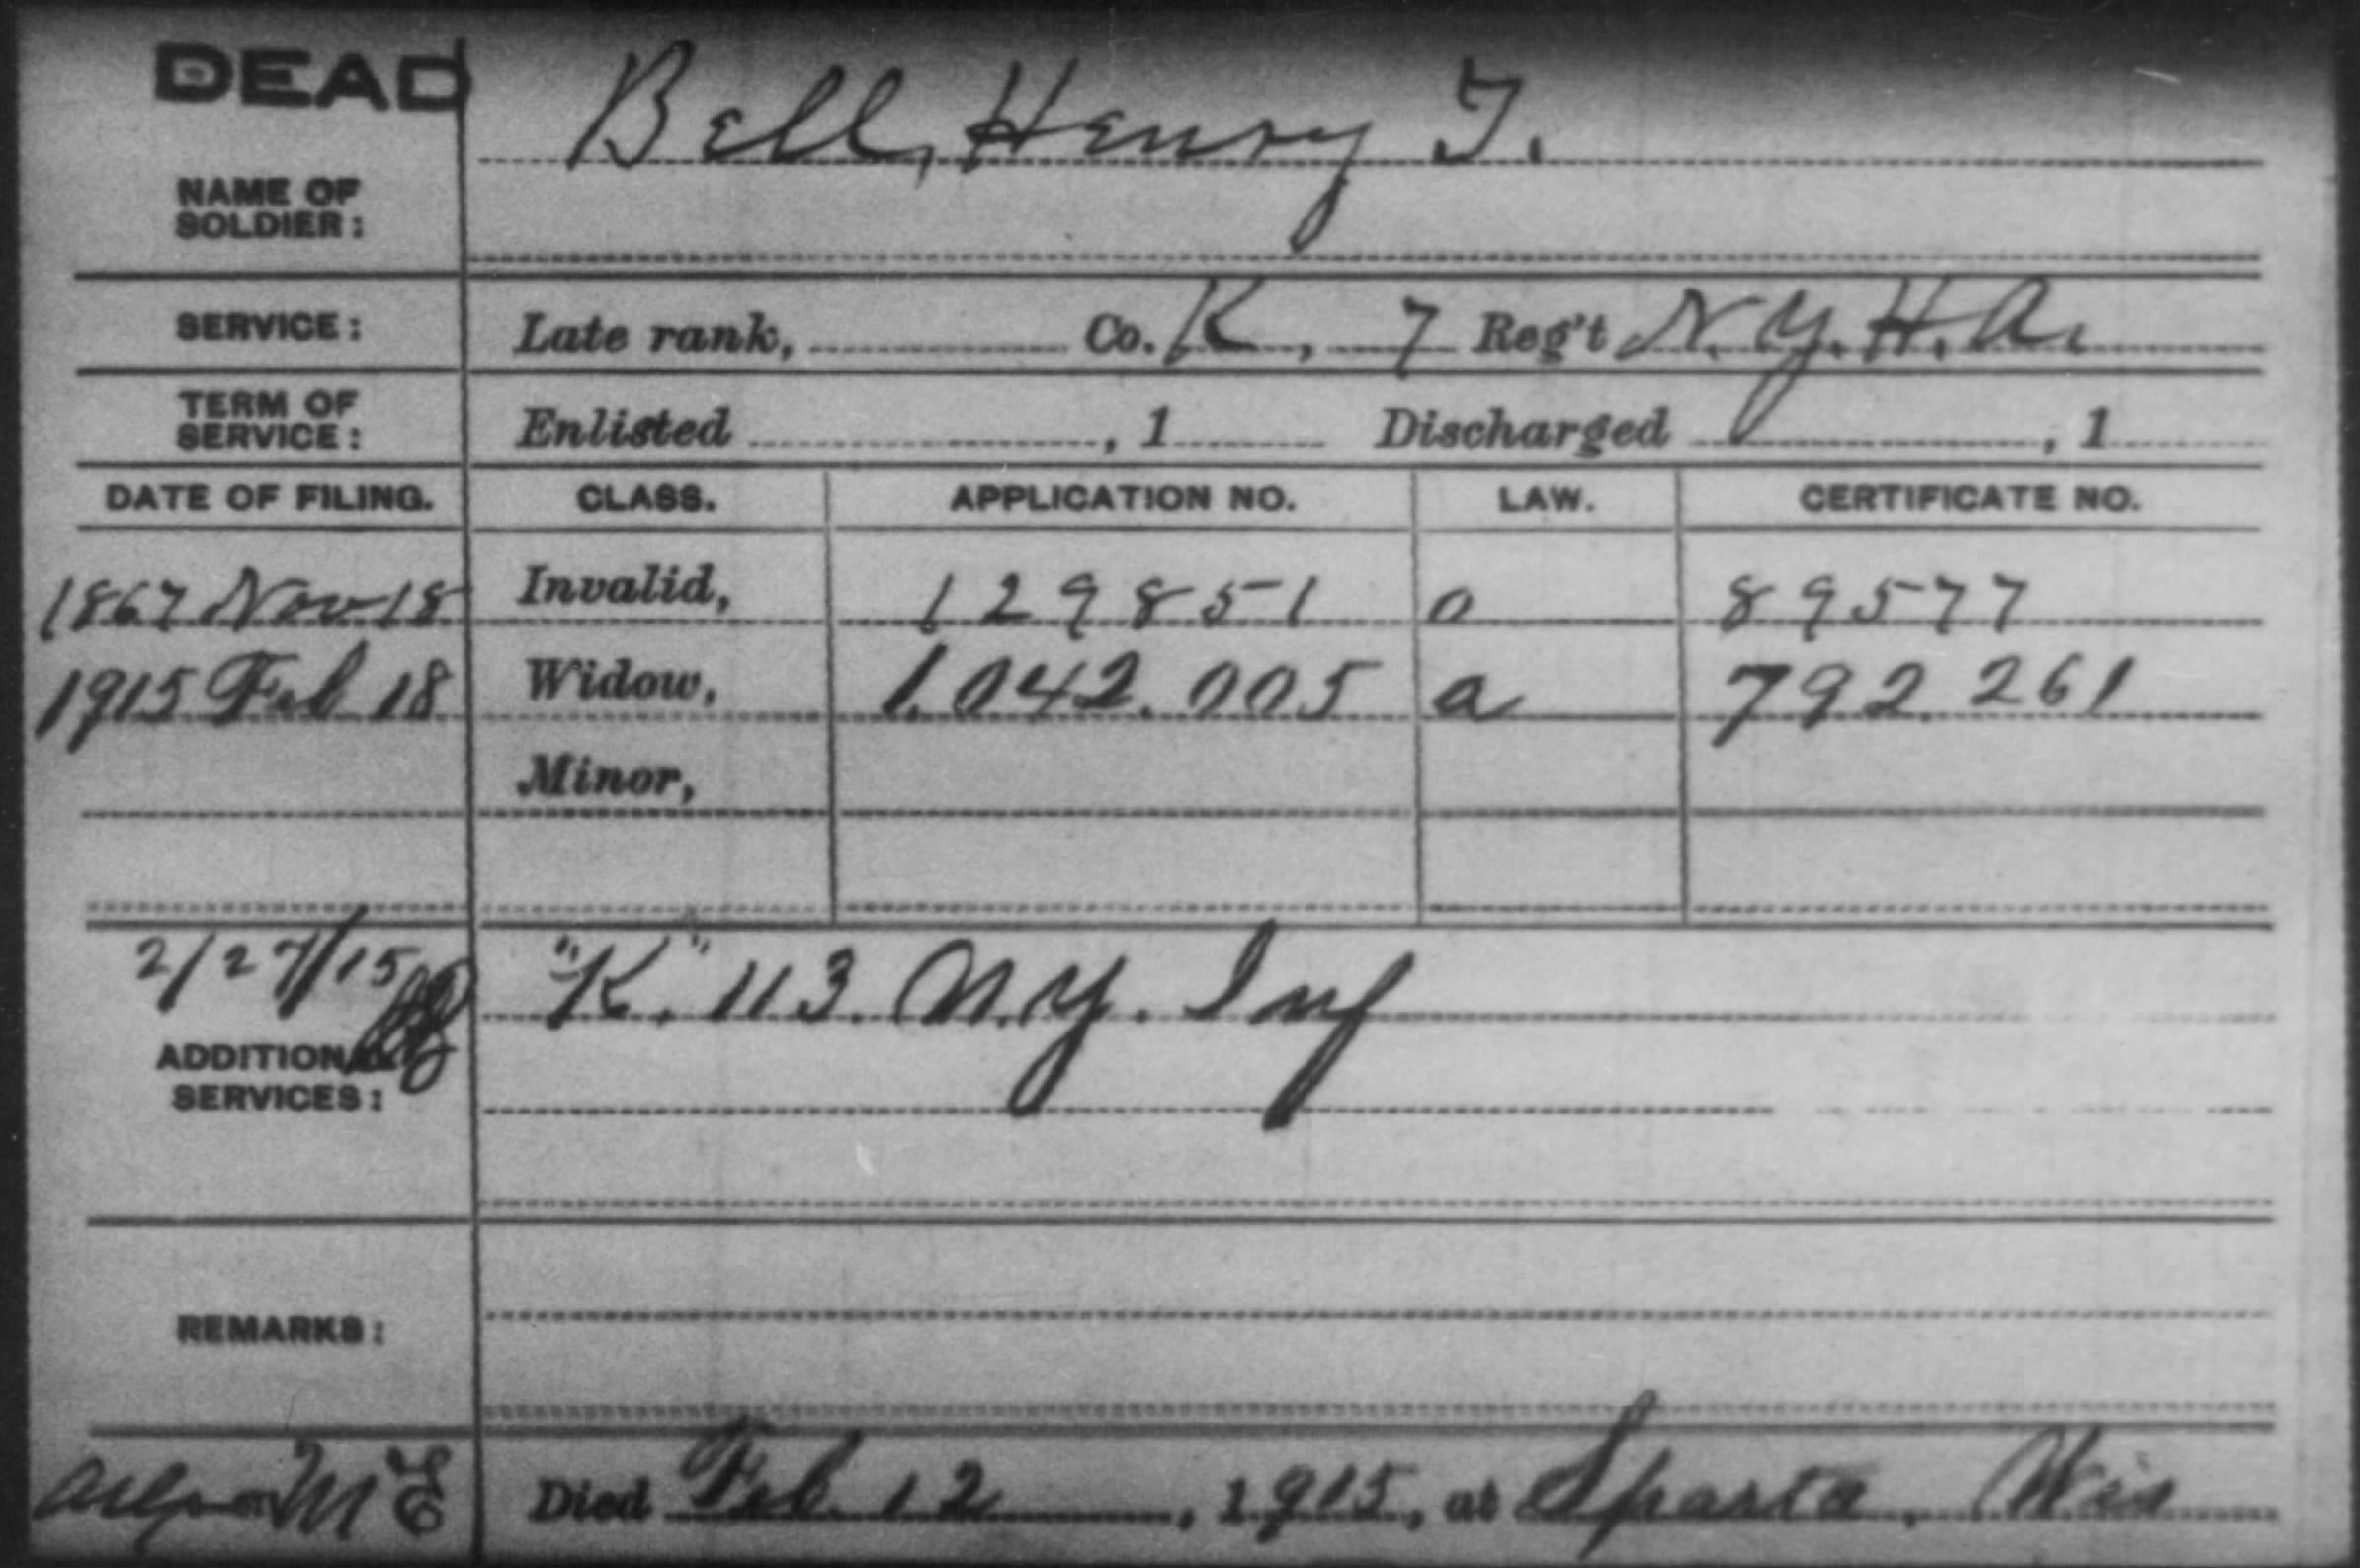 DEAD
Bell, Henry T.
NAME OF
SOLDIER:
SERVICE: Late rank, Co. K, 7 Reg't N.Y.H.A.
TERM OF
SERVICE: Enlisted , 1 Discharged , 1
DATE OF FILING. CLASS. APPLICATION NO. LAW. CERTIFICATE NO.
1867 Nov 18 Invalid, 129851 o 89577
1915 Feb 18 Widow, 1.042.005 a 792.261
Minor,
2/27/15 "K." 113. N.Y. Inf
ADDITIONAL
SERVICES:
REMARKS:
Died Feb. 12, 1915, at Sparta, Wis